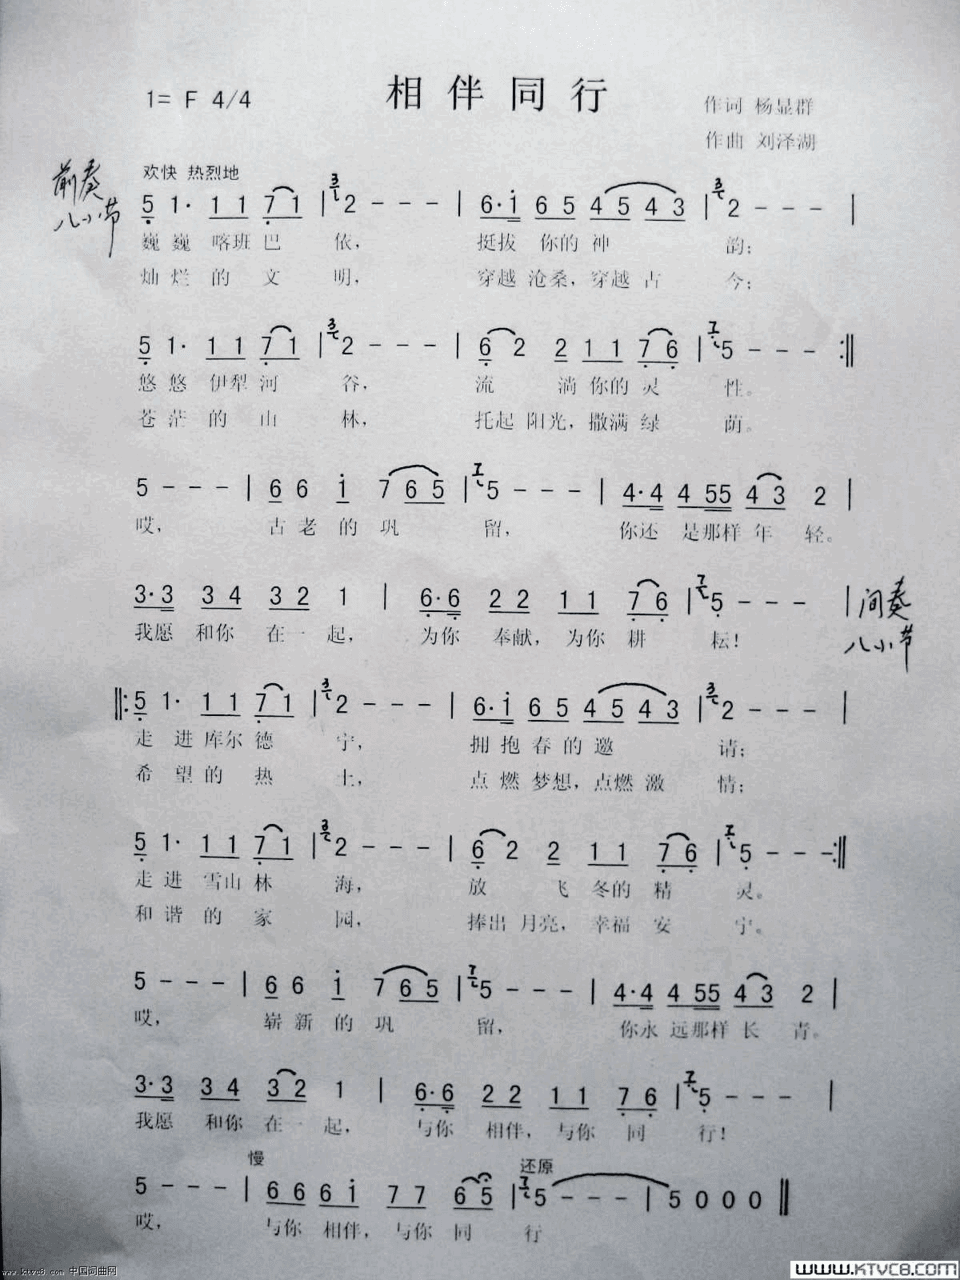 相伴同行
1= F 4/4
作词 杨显群
作曲 刘泽湖
欢快 热烈地
前奏
八小节
5 1· 1 1 7 1 | 2 - - - | 6·i 6 5 4 5 4 3 | 2 - - - |
巍巍 喀班巴 依, 挺拔 你的神 韵;
灿烂的文 明, 穿越沧桑,穿越古 今;
5 1· 1 1 7 1 | 2 - - - | 6 2 2 1 1 7 6 | 5 - - - :||
悠悠 伊犁河 谷, 流 淌你的灵 性。
苍茫的山 林, 托起阳光,撒满绿 荫。
5 - - - | 6 6 i 7 6 5 | 5 - - - | 4·4 4 55 4 3 2 |
哎, 古老的巩 留, 你还 是那样年 轻。
3·3 3 4 3 2 1 | 6·6 2 2 1 1 7 6 | 5 - - - |
间奏
八小节
我愿 和你 在一起, 为你 奉献,为你 耕 耘!
||: 5 1· 1 1 7 1 | 2 - - - | 6·i 6 5 4 5 4 3 | 2 - - - |
走进库尔德 宁, 拥抱春的邀 请;
希望的热 土, 点燃梦想,点燃激 情;
5 1· 1 1 7 1 | 2 - - - | 6 2 2 1 1 7 6 | 5 - - - :||
走进 雪山林 海, 放 飞冬的精 灵。
和谐的家 园, 捧出月亮,幸福安 宁。
5 - - - | 6 6 i 7 6 5 | 5 - - - | 4·4 4 55 4 3 2 |
哎, 崭新的巩 留, 你永远那样长 青。
3·3 3 4 3 2 1 | 6·6 2 2 1 1 7 6 | 5 - - - |
我愿 和你 在一起, 与你 相伴,与你 同 行!
慢 还原
5 - - - | 6 6 6 i 7 7 6 5 | 5 - - - | 5 0 0 0 ||
哎, 与你 相伴,与你 同 行
www.ktvc8.com 中国词曲网
WWW.KTVC8.COM